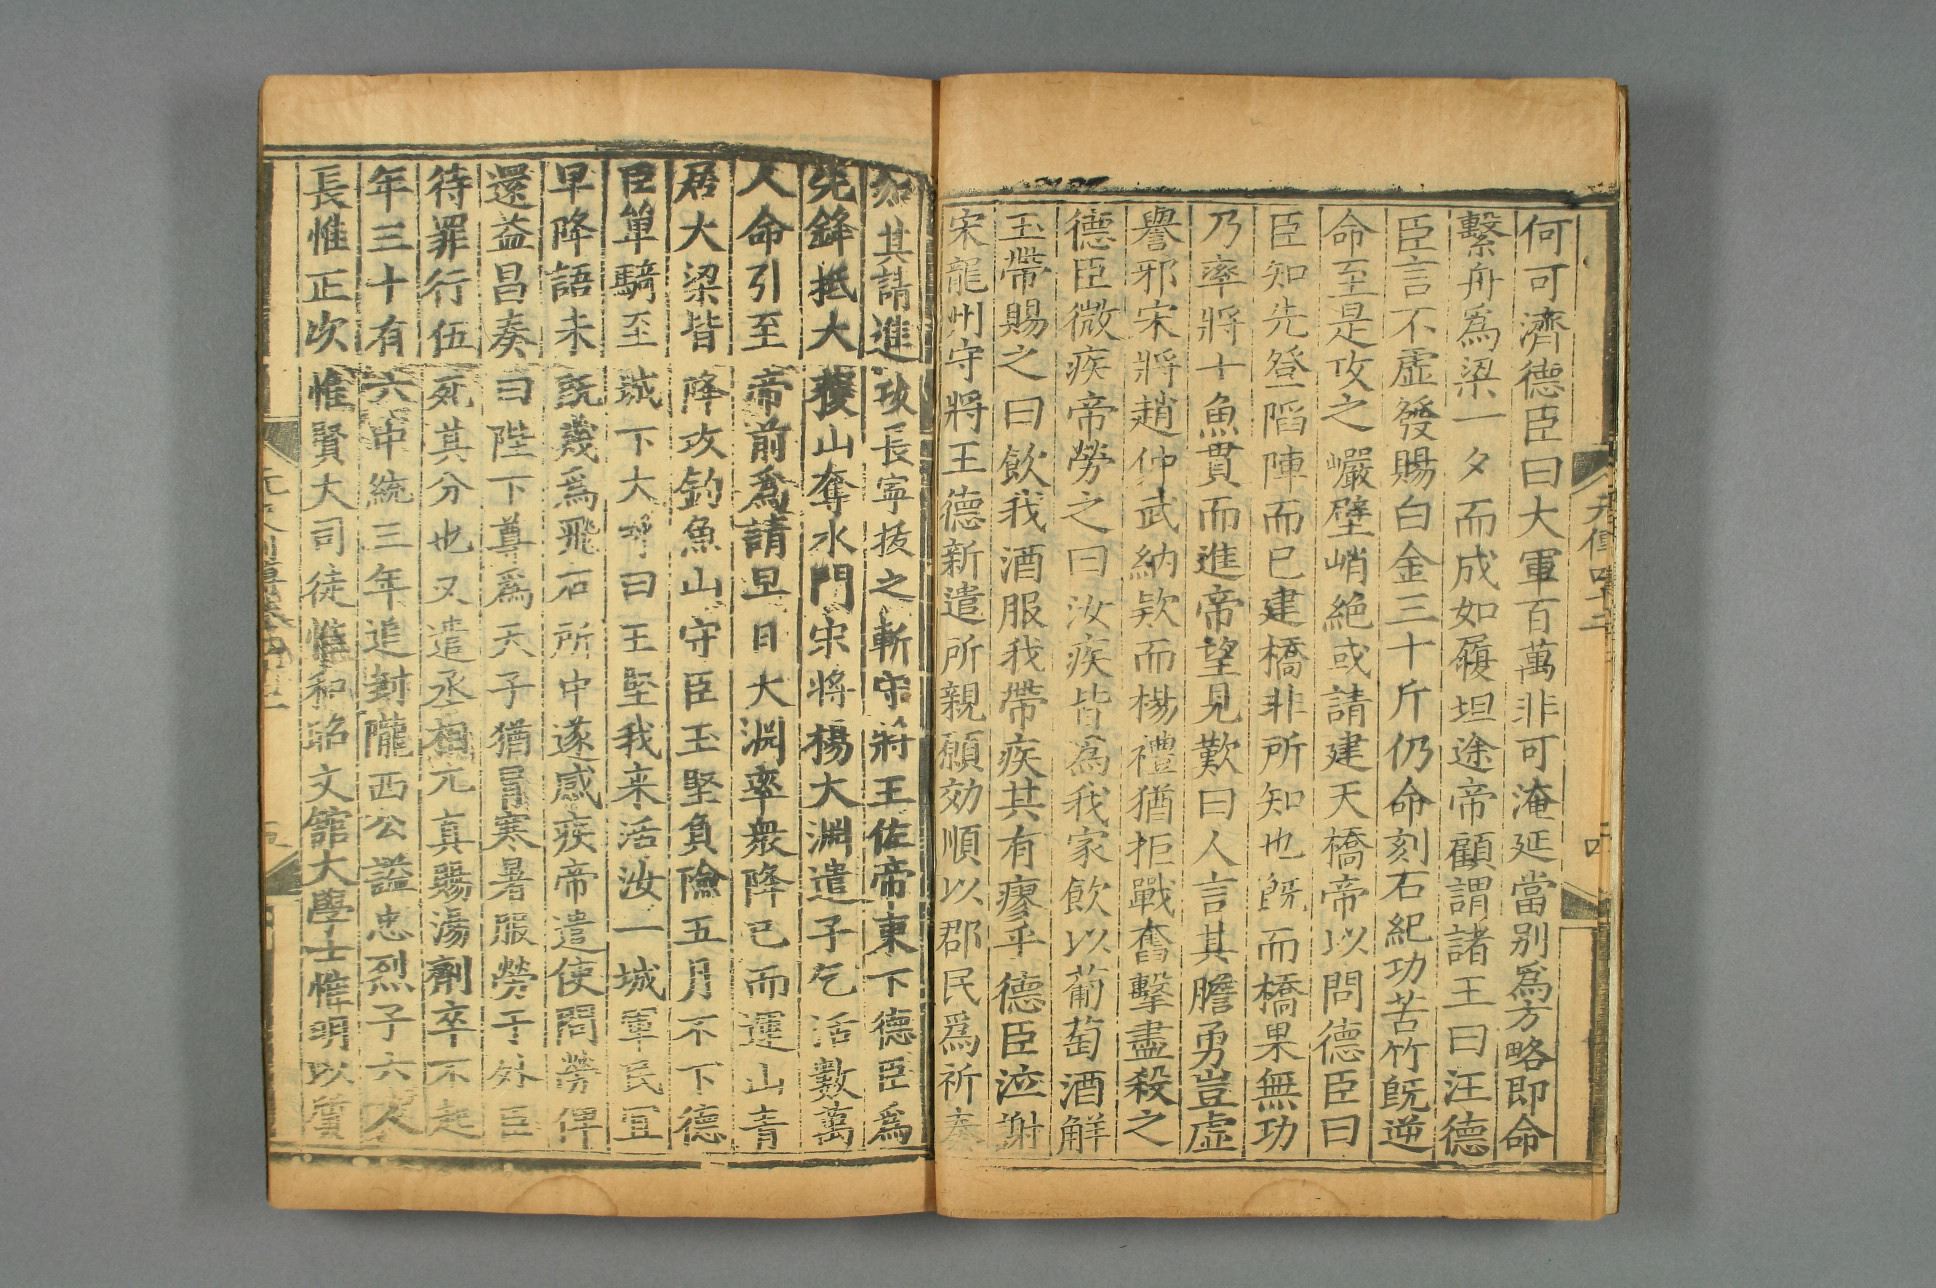 何可濟德臣曰大軍百萬非可淹延當别爲方略即命
繫舟爲梁一夕而成如履坦途帝顧謂諸王曰汪德
臣言不虛發賜白金三十斤仍命刻石紀功苦竹旣逆
命至是攻之巗壁峭絶或請建天橋帝以問德臣曰
臣知先登陷陣而已建橋非所知也旣而橋果無功
乃率將士魚貫而進帝望見歎曰人言其膽勇豈虛
譽邪宋將趙仲武納欵而楊禮猶拒戰奮擊盡殺之
德臣微疾帝勞之曰汝疾皆爲我家飲以葡萄酒解
玉帶賜之曰飲我酒服我帶疾其有瘳乎德臣泣謝
宋龍州守將王德新遣所親願効順以郡民爲祈奏
如其請進攻長寧拔之斬守將王佐帝東下德臣爲
先鋒抵大獲山奪水門宋將楊大淵遣子乞活數萬
人命引至帝前爲請旦日大淵率衆降已而運山青
居大梁皆降攻釣魚山守臣王堅負險五月不下德
臣單騎至城下大呼曰王堅我来活汝一城軍民宜
早降語未旣幾爲飛石所中遂感疾帝遣使問勞俾
還益昌奏曰陛下尊爲天子猶冒寒暑服勞于外臣
待罪行伍死其分也又遣丞相兀真賜湯劑卒不起
年三十有六中統三年追封隴西公謚忠烈子六人
長惟正次惟賢大司徒惟和昭文館大學士惟明以質